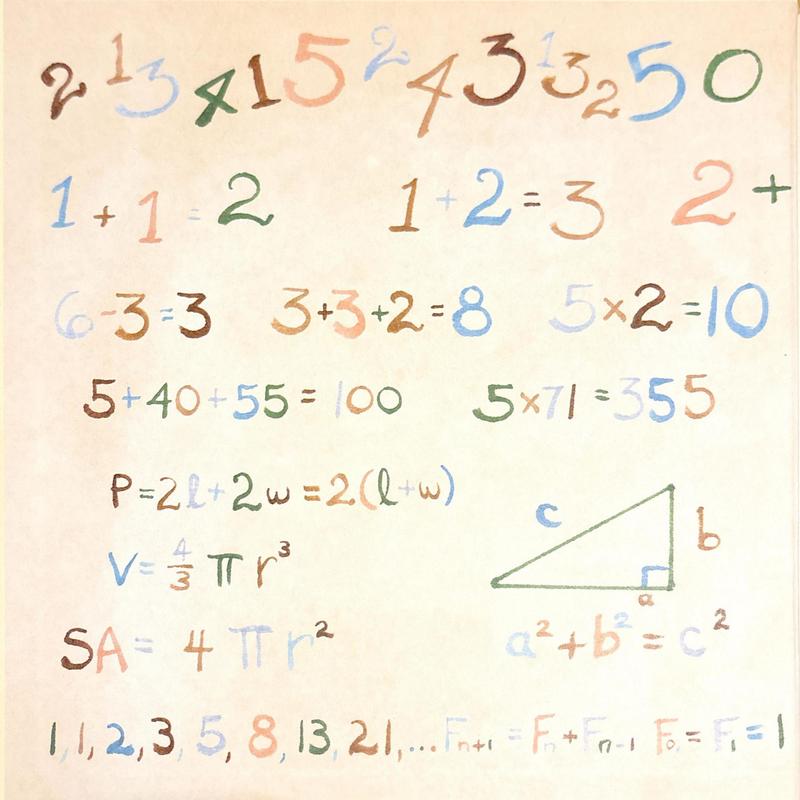 2 1 3 4 1 5 2 4 3 1 3 2 5 0
1 + 1 = 2 1 + 2 = 3 2 +
6-3=3 3+3+2=8 5×2=10
5+40+55=100 5×71=355
P=2l+2w=2(l+w)
c
b
V=4/3 πr³
a
SA= 4πr² a²+b²=c²
1,1,2,3,5,8,13,21,...Fn+1 = Fn+Fn-1 F0= F1=1